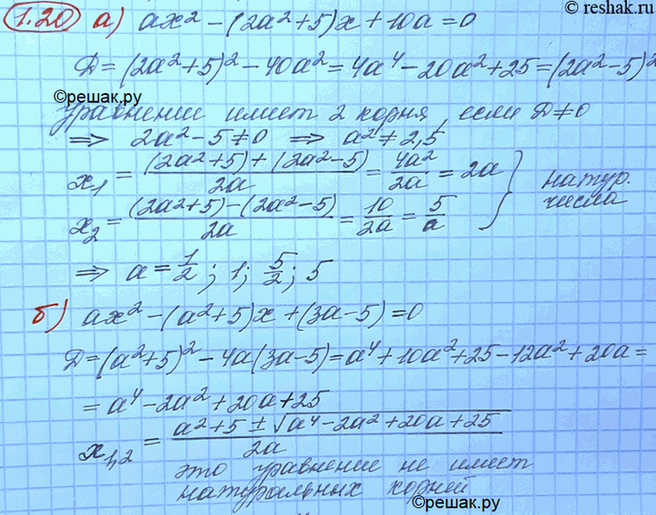 reshak.ru
1.20 а) ax² − (2a² + 5)x + 10a = 0
D = (2a² + 5)² − 40a² = 4a⁴ − 20a² + 25 = (2a² − 5)²
©решак.ру
Уравнение имеет 2 корня, если D ≠ 0
⇒ 2a² − 5 ≠ 0 ⇒ a² ≠ 2,5
x₁ = ((2a² + 5) + (2a² − 5))/2a = 4a²/2a = 2a
x₂ = ((2a² + 5) − (2a² − 5))/2a = 10/2a = 5/a } натур. числа
⇒ a = 1/2; 1; 5/2; 5
б) ax² − (a² + 5)x + (3a − 5) = 0
D = (a² + 5)² − 4a(3a − 5) = a⁴ + 10a² + 25 − 12a² + 20a =
= a⁴ − 2a² + 20a + 25
x₁,₂ = (a² + 5 ± √(a⁴ − 2a² + 20a + 25))/2a
это уравнение не имеет
натуральных корней
©решак.ру